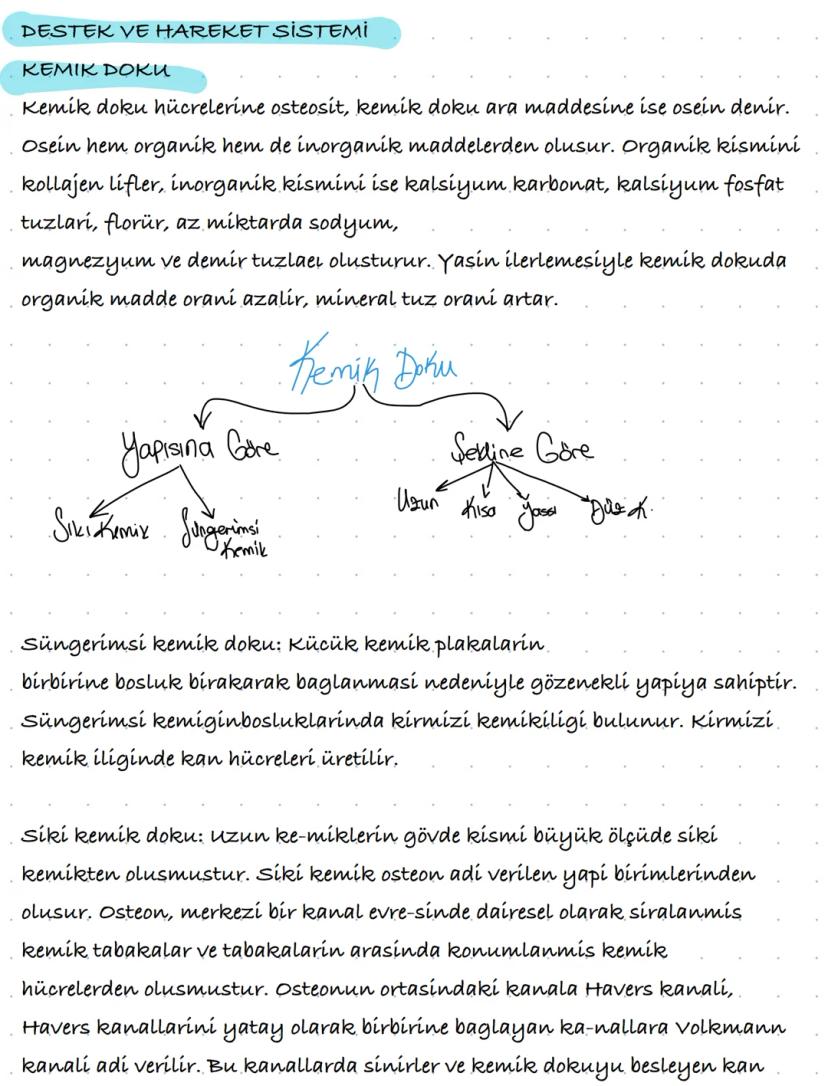 DESTEK VE HAREKET SİSTEMİ
KEMIK DOKU
Kemik doku hücrelerine osteosit, kemik doku ara maddesine ise osein denir.
Osein hem organik hem de inorganik maddelerden olusur. Organik kismini
kollajen lifler, inorganik kismini ise kalsiyum karbonat, kalsiyum fosfat
tuzlari, florür, az miktarda sodyum,
magnezyum ve demir tuzlaeı olusturur. Yasin ilerlemesiyle kemik dokuda
organik madde orani azalir, mineral tuz orani artar.
Kemik Doku
Yapısına Göre
Şekline Göre
Uzun Kısa Yassı Düz K.
Sıkı Kemik Süngerimsi
Kemik
Süngerimsi kemik doku: Kücük kemik plakalarin
birbirine bosluk birakarak baglanmasi nedeniyle gözenekli yapiya sahiptir.
Süngerimsi kemiginbosluklarinda kirmizi kemikiligi bulunur. Kirmizi
kemik iliginde kan hücreleri üretilir.
Siki kemik doku: Uzun ke-miklerin gövde kismi büyük ölçüde siki
kemikten olusmustur. Siki kemik osteon adi verilen yapi birimlerinden
olusur. Osteon, merkezi bir kanal evre-sinde dairesel olarak siralanmis
kemik tabakalar ve tabakalarin arasinda konumlanmis kemik
hücrelerden olusmustur. Osteonun ortasindaki kanala Havers kanali,
Havers kanallarini yatay olarak birbirine baglayan ka-nallara Volkmann
kanali adi verilir. Bu kanallarda sinirler ve kemik dokuyu besleyen kan